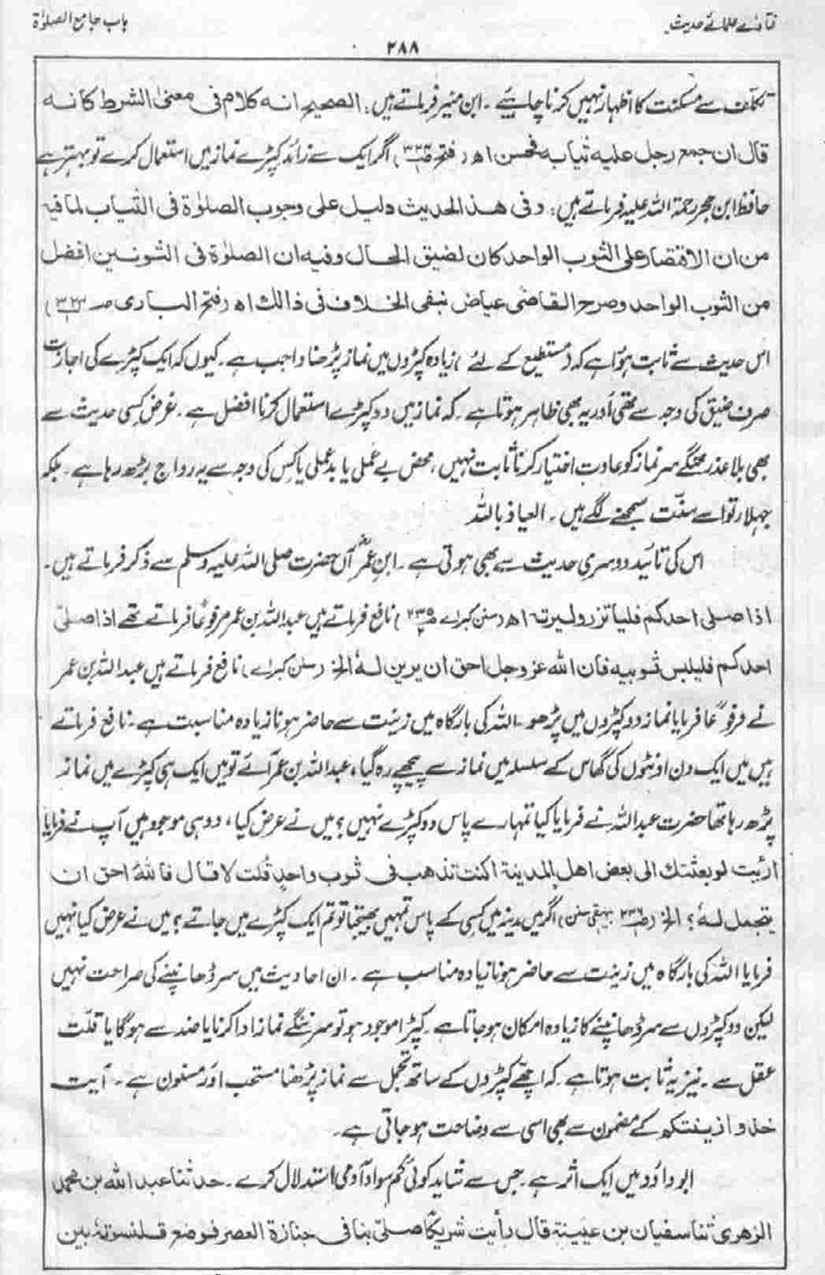 فتاویٰ علمائے حدیث
باب جامع الصلوٰۃ
۲۸۸
تکلف سے مسکنت کا اظہار نہیں کرنا چاہیئے۔ ابن منیر فرماتے ہیں: الصحیح انہ کلام فی معنی الشرط کانہ
قال ان جمع رجل علیہ ثیابہ فحسن اھ (فتح) اگر ایک سے زائد کپڑے نماز میں استعمال کرے تو بہتر ہے
حافظ ابن حجر رحمۃ اللہ علیہ فرماتے ہیں: وفی ھذا الحدیث دلیل علی وجوب الصلوٰۃ فی الثیاب لما فیہ
من ان الاقتصار علی الثوب الواحد کان لضیق الحال وفیہ ان الصلوٰۃ فی الثوبین افضل
من الثوب الواحد وصرح القاضی عیاض بنفی الخلاف فی ذالک اھ (فتح الباری ص)
اس حدیث سے ثابت ہوتا ہے کہ (مستطیع کے لئے) زیادہ کپڑوں میں نماز پڑھنا واجب ہے۔ کیوں کہ ایک کپڑے کی اجازت
صرف ضیق کی وجہ سے تھی اور یہ بھی ظاہر ہوتا ہے۔ کہ نماز میں دو کپڑے استعمال کرنا افضل ہے۔ غرض کسی حدیث سے
بھی بلا عذر ننگے سر نماز کو عادت اختیار کرنا ثابت نہیں، محض بے عملی یا بد عملی یا کس کی وجہ سے یہ رواج بڑھ رہا ہے۔ بلکہ
جہلا تو اسے سنت سمجھنے لگے ہیں۔ العیاذ باللہ
اس کی تائید دوسری حدیث سے بھی ہوتی ہے۔ ابن عمرؓ آں حضرت صلی اللہ علیہ وسلم سے ذکر فرماتے ہیں۔
اذا صلی احدکم فلیاتزر ولیرتد اھ (سنن کبرے ۲۳۵) نافع فرماتے ہیں عبداللہ بن عمر مرفوعًا فرماتے تھے اذا صلی
احدکم فلیلبس ثوبیہ فان اللہ عزوجل احق ان یزین لہ الخ (سنن کبرے) نافع فرماتے ہیں عبداللہ بن عمر
نے مرفوعًا فرمایا نماز دو کپڑوں میں پڑھو۔ اللہ کی بارگاہ میں زینت سے حاضر ہونا زیادہ مناسبت ہے۔ نافع فرماتے
ہیں میں ایک دن اونٹوں کی گھاس کے سلسلہ میں نماز سے پیچھے رہ گیا، عبداللہ بن عمر آئے تو میں ایک ہی کپڑے میں نماز
پڑھ رہا تھا حضرت عبداللہ نے فرمایا کیا تمہارے پاس دو کپڑے نہیں؟ میں نے عرض کیا، دو ہی موجود ہیں آپ نے فرمایا
ارئیت لو بعثتک الی بعض اھل المدینۃ اکنت تذھب فی ثوب واحد قلت لا قال فاللہ احق ان
یتجمل لہ؟ الخ (ص ۲۳۶ بیہقی سنن) اگر میں مدینہ میں کسی کے پاس تمہیں بھیجتا تو تم ایک کپڑے میں جاتے؟ میں نے عرض کیا نہیں
فرمایا اللہ کی بارگاہ میں زینت سے حاضر ہونا زیادہ مناسب ہے۔ ان احادیث میں سر ڈھانپنے کی صراحت نہیں
لیکن دو کپڑوں سے سر ڈھانپنے کا زیادہ امکان ہو جاتا ہے۔ کپڑا موجود ہو تو سر ننگے نماز ادا کرنا یا ضد سے ہو گا یا قلت
عقل سے۔ نیز یہ ثابت ہوتا ہے۔ کہ اچھے کپڑوں کے ساتھ تجمل سے نماز پڑھنا مستحب اور مسنون ہے۔ آیت
خذوا زینتکم کے مضمون سے بھی اسی سے وضاحت ہو جاتی ہے۔
ابو داؤد میں ایک اثر ہے۔ جس سے شاید کوئی کم سواد آدمی استدلال کرے۔ حدثنا عبد اللہ بن محمد
الزھری ثنا سفیان بن عیینۃ قال رأیت شریکًا صلی بنا فی جنازۃ العصر فوضع قلنسوتہ بین